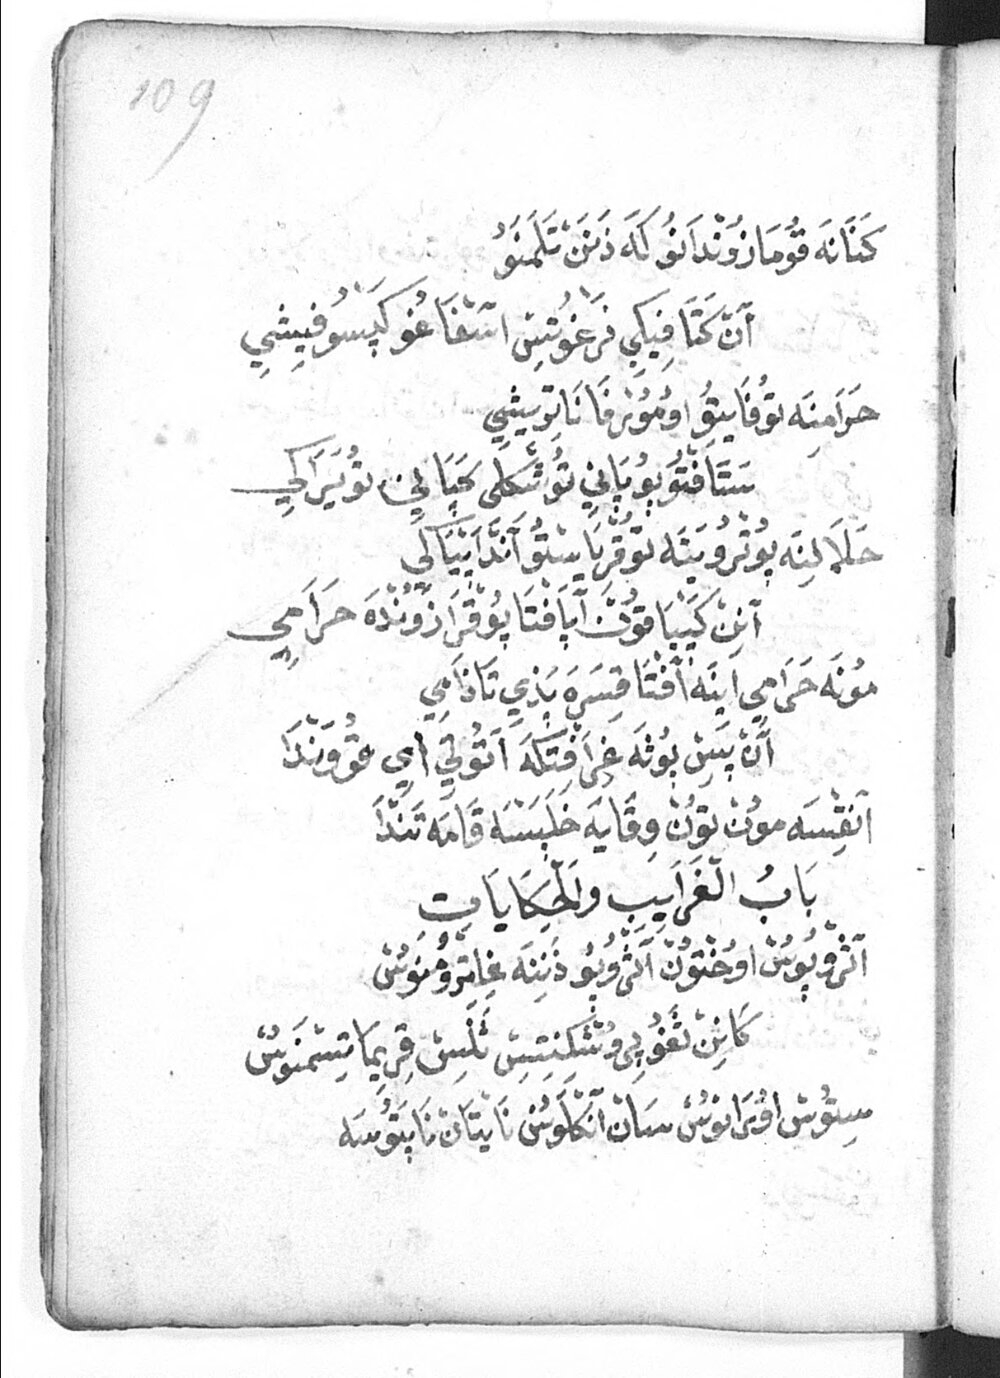 109
كَنَّانَه قُومَازُونْدَانُو كَه ذَنَنْ تَلَمَنَوُ
آنْ كَتَافِيكِي نَرَغُوتِسْ اسْفَاغُو كَبَسُو فِيشِي
حَرَامِنَه تُوفَايِتُو اوُمُوزْفَانَا تِرِيشِي
سَتَافْتُو پُويَانِي تُو شَكَلَى حَپَالِي تُو يَرَاكِي
حَلَالِنَه پُوتْرُويَتَه تُوقُرْيَاسْتُو آنْدَايْيَاكِي
آنِنْ كَيْپَاقُونْ آيَافْتَا پُوقْرَازُونْدَه حَرَامِي
مُونَه حَرَامِي اينَه اَفْتَا قِسَرَه پَذِي تَاذَامِي
آنْ پَسِنْ پُوثَه غِرَافِتْكَه اَتُوتِي اَمِي عُقُووَنْدَا
آنْفِسَه مُونْ تُونْ وِقَايَه خَلَبَسَه قَامَه تَنْدَا
بَابُ الْغَرَايِبِ وَالْحِكَايَاتِ
آنْثْرُوپُوسْ اوُخْتُونْ آنْثْرُوپُو ذَنِنَه غِلِتْرُومَنُوسْ
كَانِنْ تَغُوپِي وُشَكِنِتِسْ ثَلْسْ قِرِيمَاتِسْمَنُوسْ
سِتُوسْ اوُرَانُوسْ سَانْ آنْكَلَوُسْ نَايْتَانْ نَاپَتُوسَه